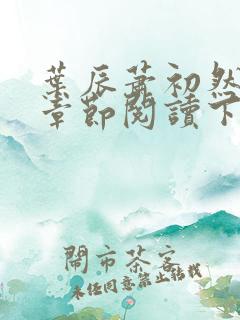 葉辰蕭初然
章節閱讀下
鬧市茶客
未經同意禁止轉載